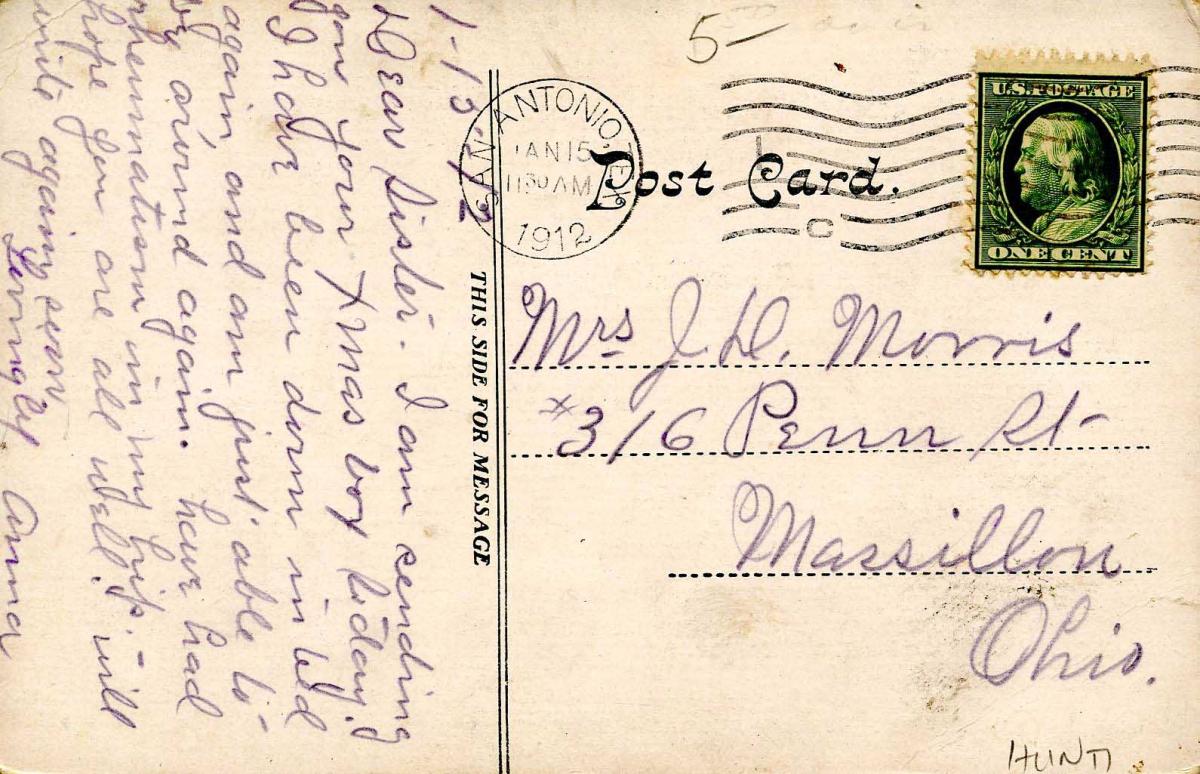 5-
U.S. POSTAGE
ONE CENT
SAN ANTONIO, TEX.
JAN 15
11 30 AM
1912
C
Post Card.
THIS SIDE FOR MESSAGE
1-15-12
Dear Sister. I am sending
you your Xmas box today.
I have been down in bed
again and am just able to
be around again. have had
rheumatism in my hip.
hope you are all well. will
write again soon
Lovingly Anna
Mrs J. D. Morris
#316 Penn St
Massillon
Ohio.
HUNT